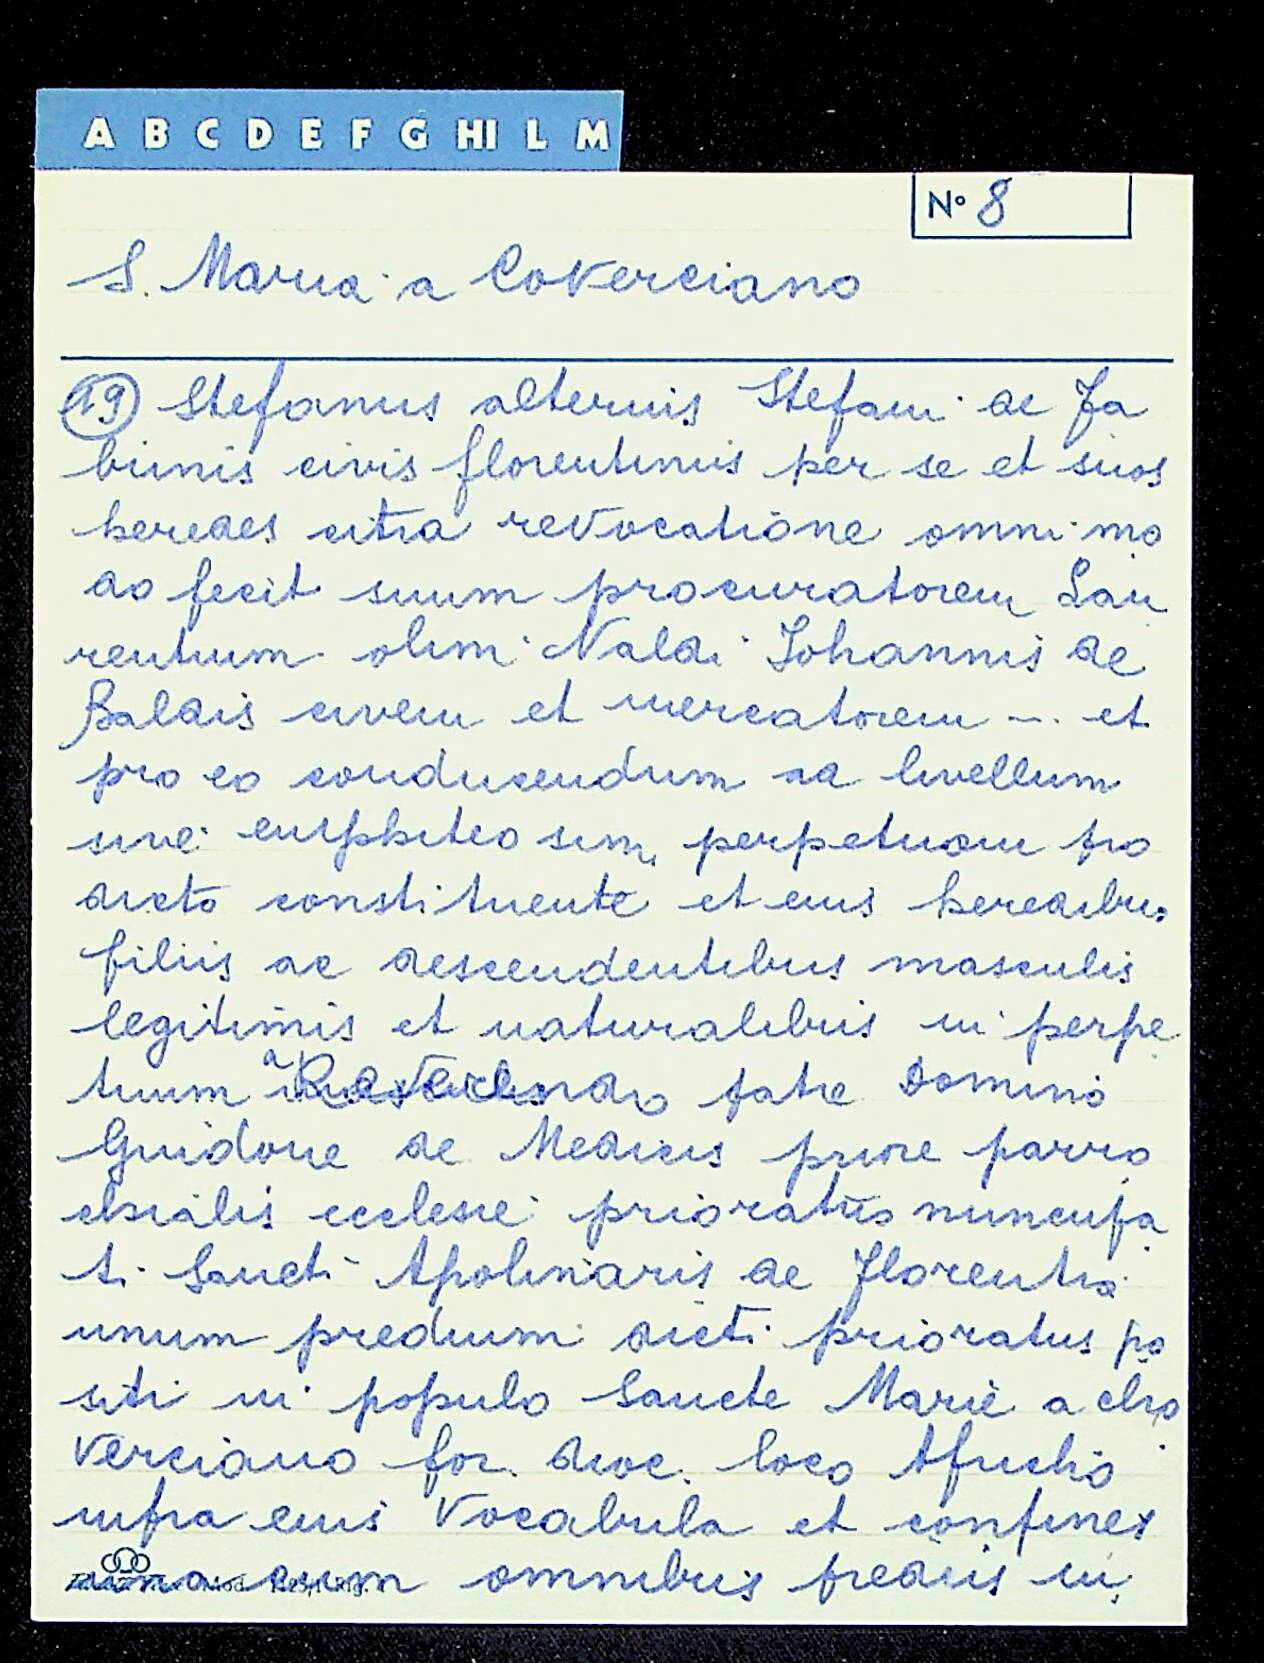 A B C D E F G HI L M
N° 8
S. Maria a Coverciano
19) Stefanus alterius Stefani de Fa
brinis civis florentinus per se et suos
heredes citra revocatione omni mo
do fecit suum procuratorem Lau
rentium olim Naldi Johannis de
Baldis civem et mercatorem - .. et
pro eo conducendum ad livellum
sive emphiteosim, perpetuam pro
dicto constituente et eius heredibus
filiis ac descendentibus masculis
legitimis et naturalibus in perpe
tuum a Reverendo patre Domino
Guidone de Medicis priore parro
chialis ecclesie prioratus nuncupa
ti Sancti Apolinaris de Florentia
unum predium dicti prioratus po
siti in populo Sancte Marie a cho
verciano for. dioc. loco Africho
infra eius vocabula et confines
una cum omnibus prediis in